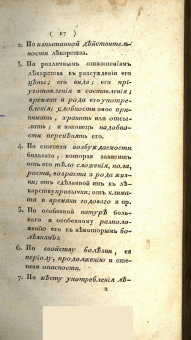 ( 17 )
2. По испытанной дѣйствитель-
ности лѣкарства.
3. По различнымъ отношеніямъ
лѣкарства въ разсужденіи его
цѣны; его вида; его прі-
уготовленія и составленія;
времени и рода его употреб-
ленія; удобности оное при-
нимать, хранить или отсы-
лать; и наконецъ надобно-
сти перемѣнять его.
4. По степени возбуждаемости
больнаго, которая зависитъ
отъ его тѣлосложенія, пола,
рода, возраста и рода жиз-
ни; отъ сдѣланной имъ къ лѣ-
карству привычки; отъ клима-
та и времени годоваго и пр.
5. По особенной натурѣ боль-
наго и особенному располо-
женію его къ нѣкоторымъ бо-
лѣзнямъ
6. По свойству болѣзни, ея
періоду, продолженію и сте-
пени опасности.
7. По мѣсту употребленія лѣ-
2